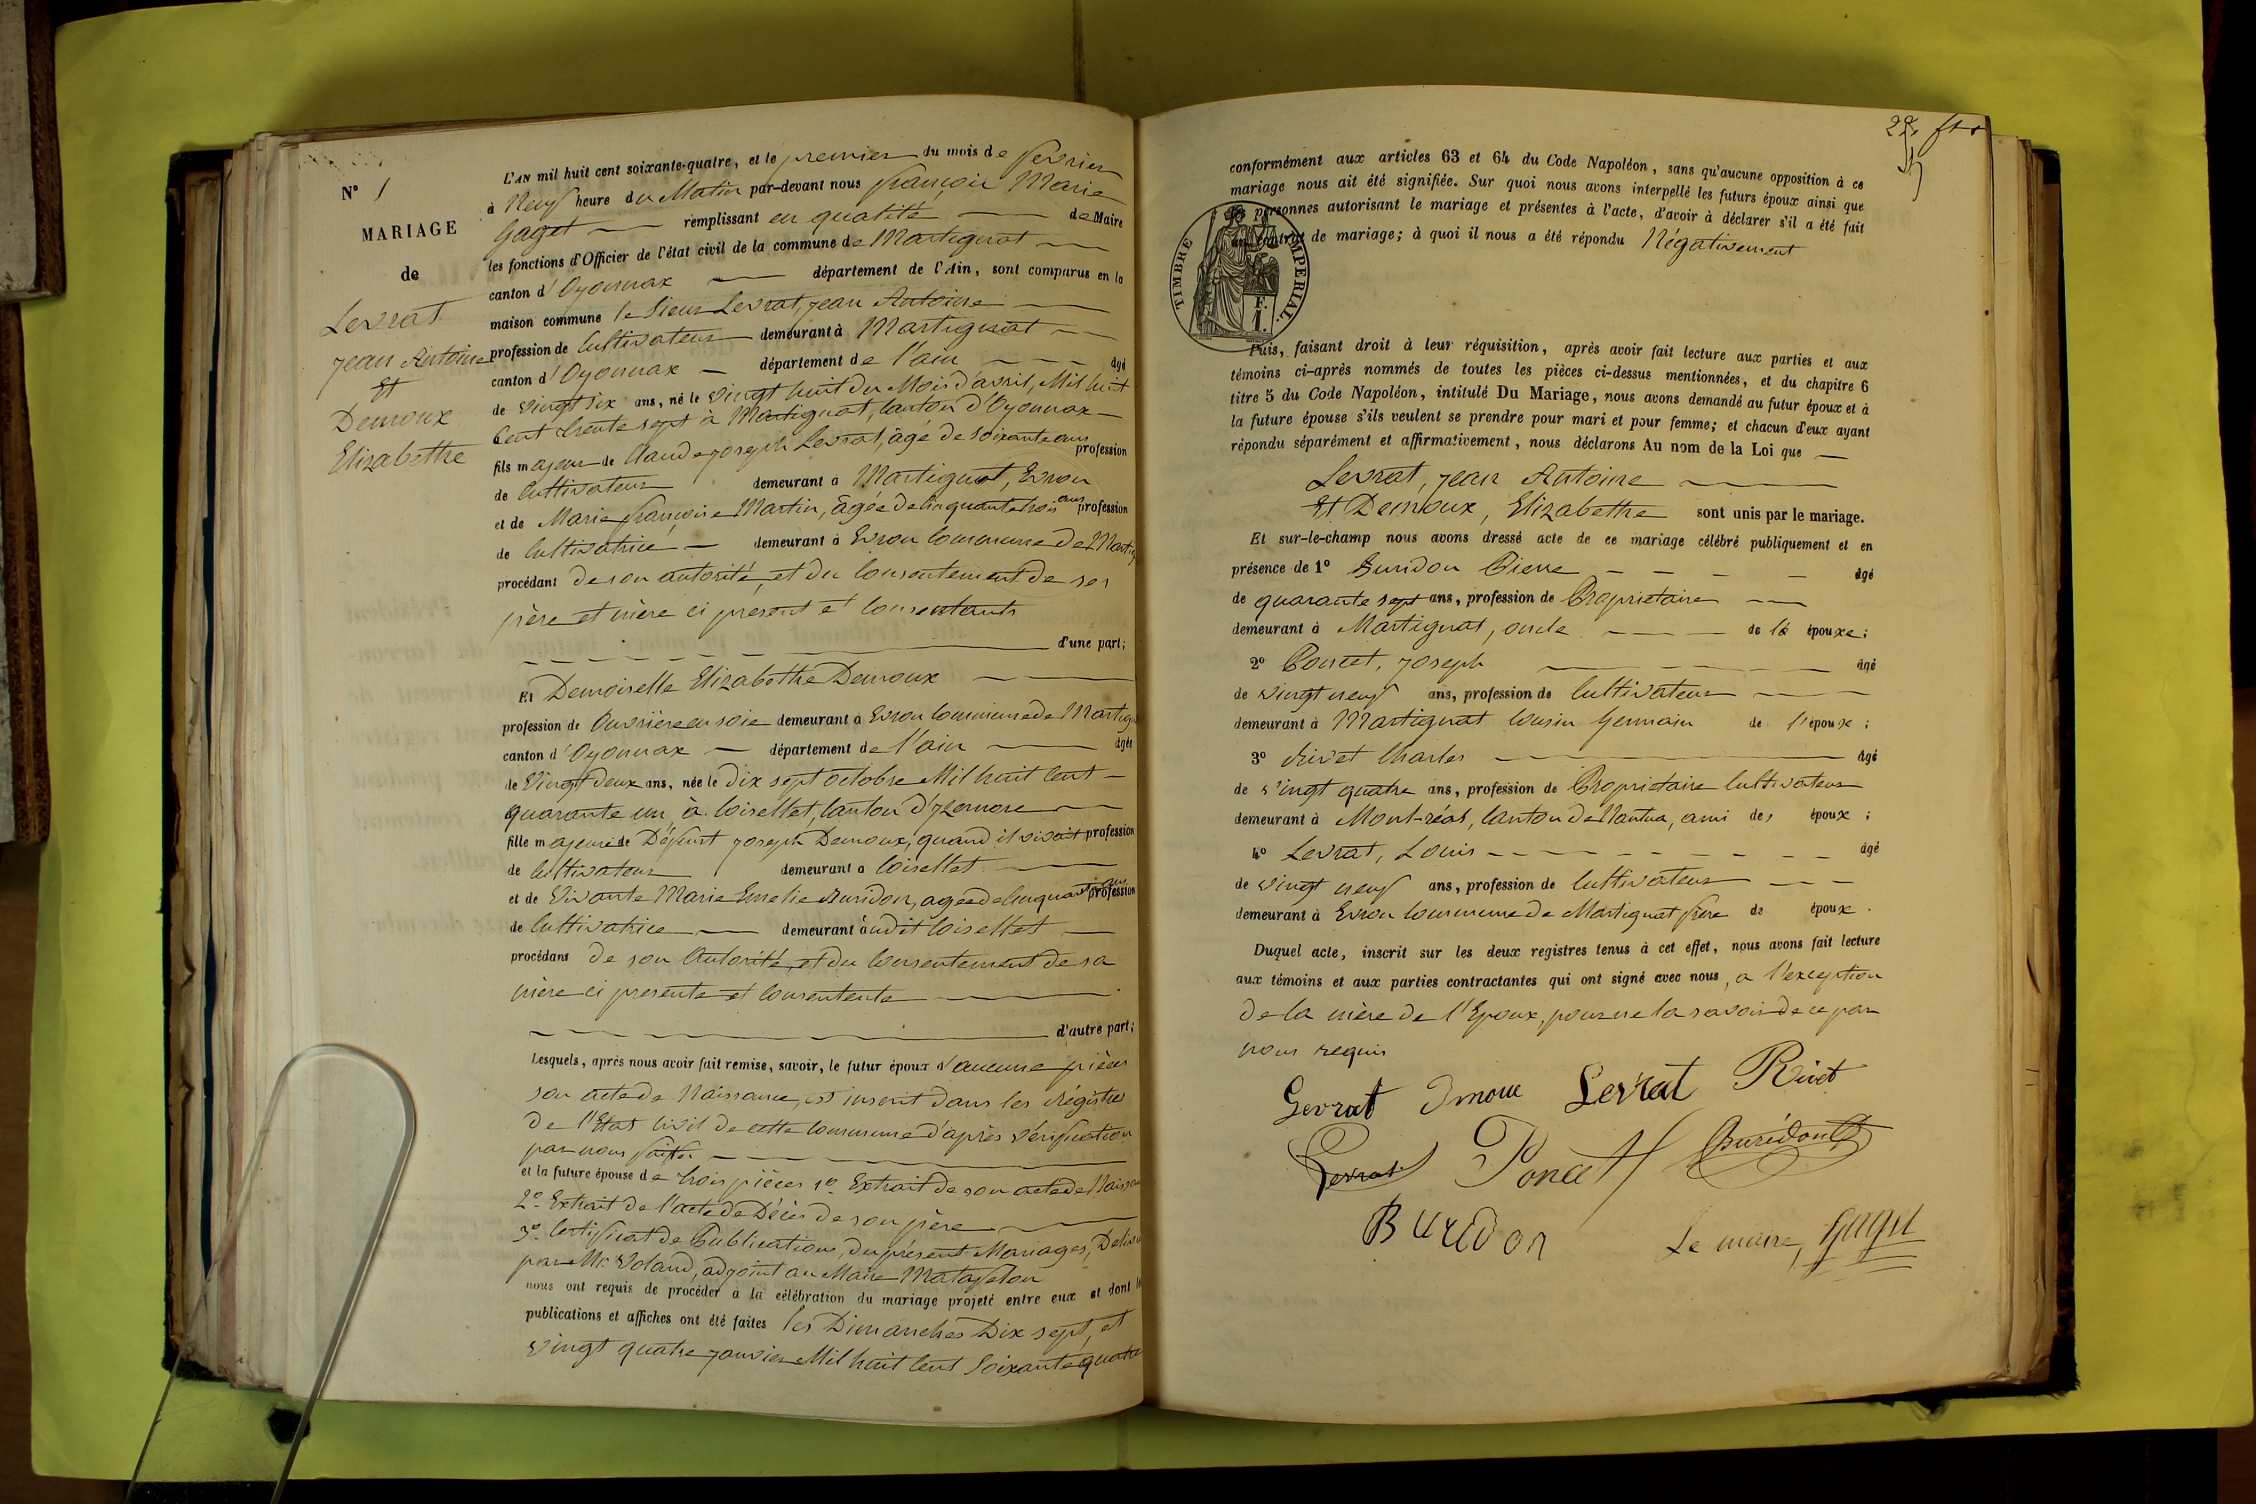 N° 1
MARIAGE
de
Levrat
Jean Antoine
Et
Demoux
Elizabethe
L'AN mil huit cent soixante-quatre, et le premier du mois de fevrier
à Neuf heure du Matin par-devant nous françois Marie
Gaget remplissant en qualité de Maire
les fonctions d'Officier de l'état civil de la commune de Martignat
canton d'Oyonnax département de l'Ain, sont comparus en la
maison commune le Sieur Levrat, Jean Antoine
profession de Cultivateur demeurant à Martignat
canton d'Oyonnax département de l'ain âgé
de vingt six ans, né le vingt huit du Mois d'avril, Mil huit
Cent trente sept à Martignat, Canton d'Oyonnax
fils majeur de Claude Joseph Levrat, âgé de soixante ans profession
de Cultivateur demeurant à Martignat, Evron
et de Marie françoise Martin, âgée de Cinquante trois ans profession
de Cultivatrice demeurant à Evron Commune de Martig
procédant de son autorité, et du Consentement de ses
père et mère ci présent et Consentants
d'une part;
Et Demoiselle Elizabethe Demoux
profession de Ouvrière en soie demeurant à Evron Commune de Martign
canton d'Oyonnax département de l'ain âgée
de Vingt deux ans, née le Dix sept octobre Mil huit Cent
quarante un, à Coisellet, Canton d'Izernore
fille majeure de Défunt Joseph Demoux, quand il vivait profession
de Cultivateur demeurant à Coisellet
et de Vivante Marie Emelie Buridon, agée de Cinquante ans profession
de Cultivatrice demeurant àudit Coisellet
procédant de son Autorité, et du Consentement de sa
mère ci presente et Consentente
d'autre part;
Lesquels, après nous avoir fait remise, savoir, le futur époux d'aucune pièces
son acte de Naissance, est inscrit dans les Régistres
de l'Etat Civil de cette Commune d'après Vérification
par nous faites
et la future épouse de trois pièces 1° Extrait de son acte de Naissan
2° Extrait de l'acte de Décès de son père
3° Certificat de Publications, du présent Mariages, Deliv
par Mr Voland, adjoint au Maire Matafelon
nous ont requis de procéder à la célébration du mariage projeté entre eux et dont l
publications et affiches ont été faites les Dimanches Dix sept, et
vingt quatre janvier Mil huit Cent Soixante quatre
conformément aux articles 63 et 64 du Code Napoléon, sans qu'aucune opposition à ce
mariage nous ait été signifiée. Sur quoi nous avons interpellé les futurs époux ainsi que
les personnes autorisant le mariage et présentes à l'acte, d'avoir à déclarer s'il a été fait
un contrat de mariage; à quoi il nous a été répondu Négativement
TIMBRE IMPERIAL.
F.
1.
Puis, faisant droit à leur réquisition, après avoir fait lecture aux parties et aux
témoins ci-après nommés de toutes les pièces ci-dessus mentionnées, et du chapitre 6
titre 5 du Code Napoléon, intitulé Du Mariage, nous avons demandé au futur époux et à
la future épouse s'ils veulent se prendre pour mari et pour femme; et chacun d'eux ayant
répondu séparément et affirmativement, nous déclarons Au nom de la Loi que
Levrat, Jean Antoine
Et Demoux, Elizabethe sont unis par le mariage.
Et sur-le-champ nous avons dressé acte de ce mariage célébré publiquement et en
présence de 1° Buridon Pierre âgé
de quarante sept ans, profession de Propriétaire
demeurant à Martignat, oncle de la épouxe;
2° Poncet, Joseph âgé
de vingt neuf ans, profession de Cultivateur
demeurant à Martignat Cousin Germain de l'époux;
3° Rivet Charles âgé
de vingt quatre ans, profession de Propriétaire Cultivateur
demeurant à Mont-réal, Canton de Nantua, ami des époux;
4° Levrat, Louis âgé
de vingt neuf ans, profession de Cultivateur
demeurant à Evron Commune de Martignat frère de époux.
Duquel acte, inscrit sur les deux registres tenus à cet effet, nous avons fait lecture
aux témoins et aux parties contractantes qui ont signé avec nous, a l'exception
de la mère de l'Epoux, pour ne la savoir de ce par
nous requis
Levrat Dmoux Levrat Rivet
Levrat Poncet Buridon
Buredon Le maire, Gaget